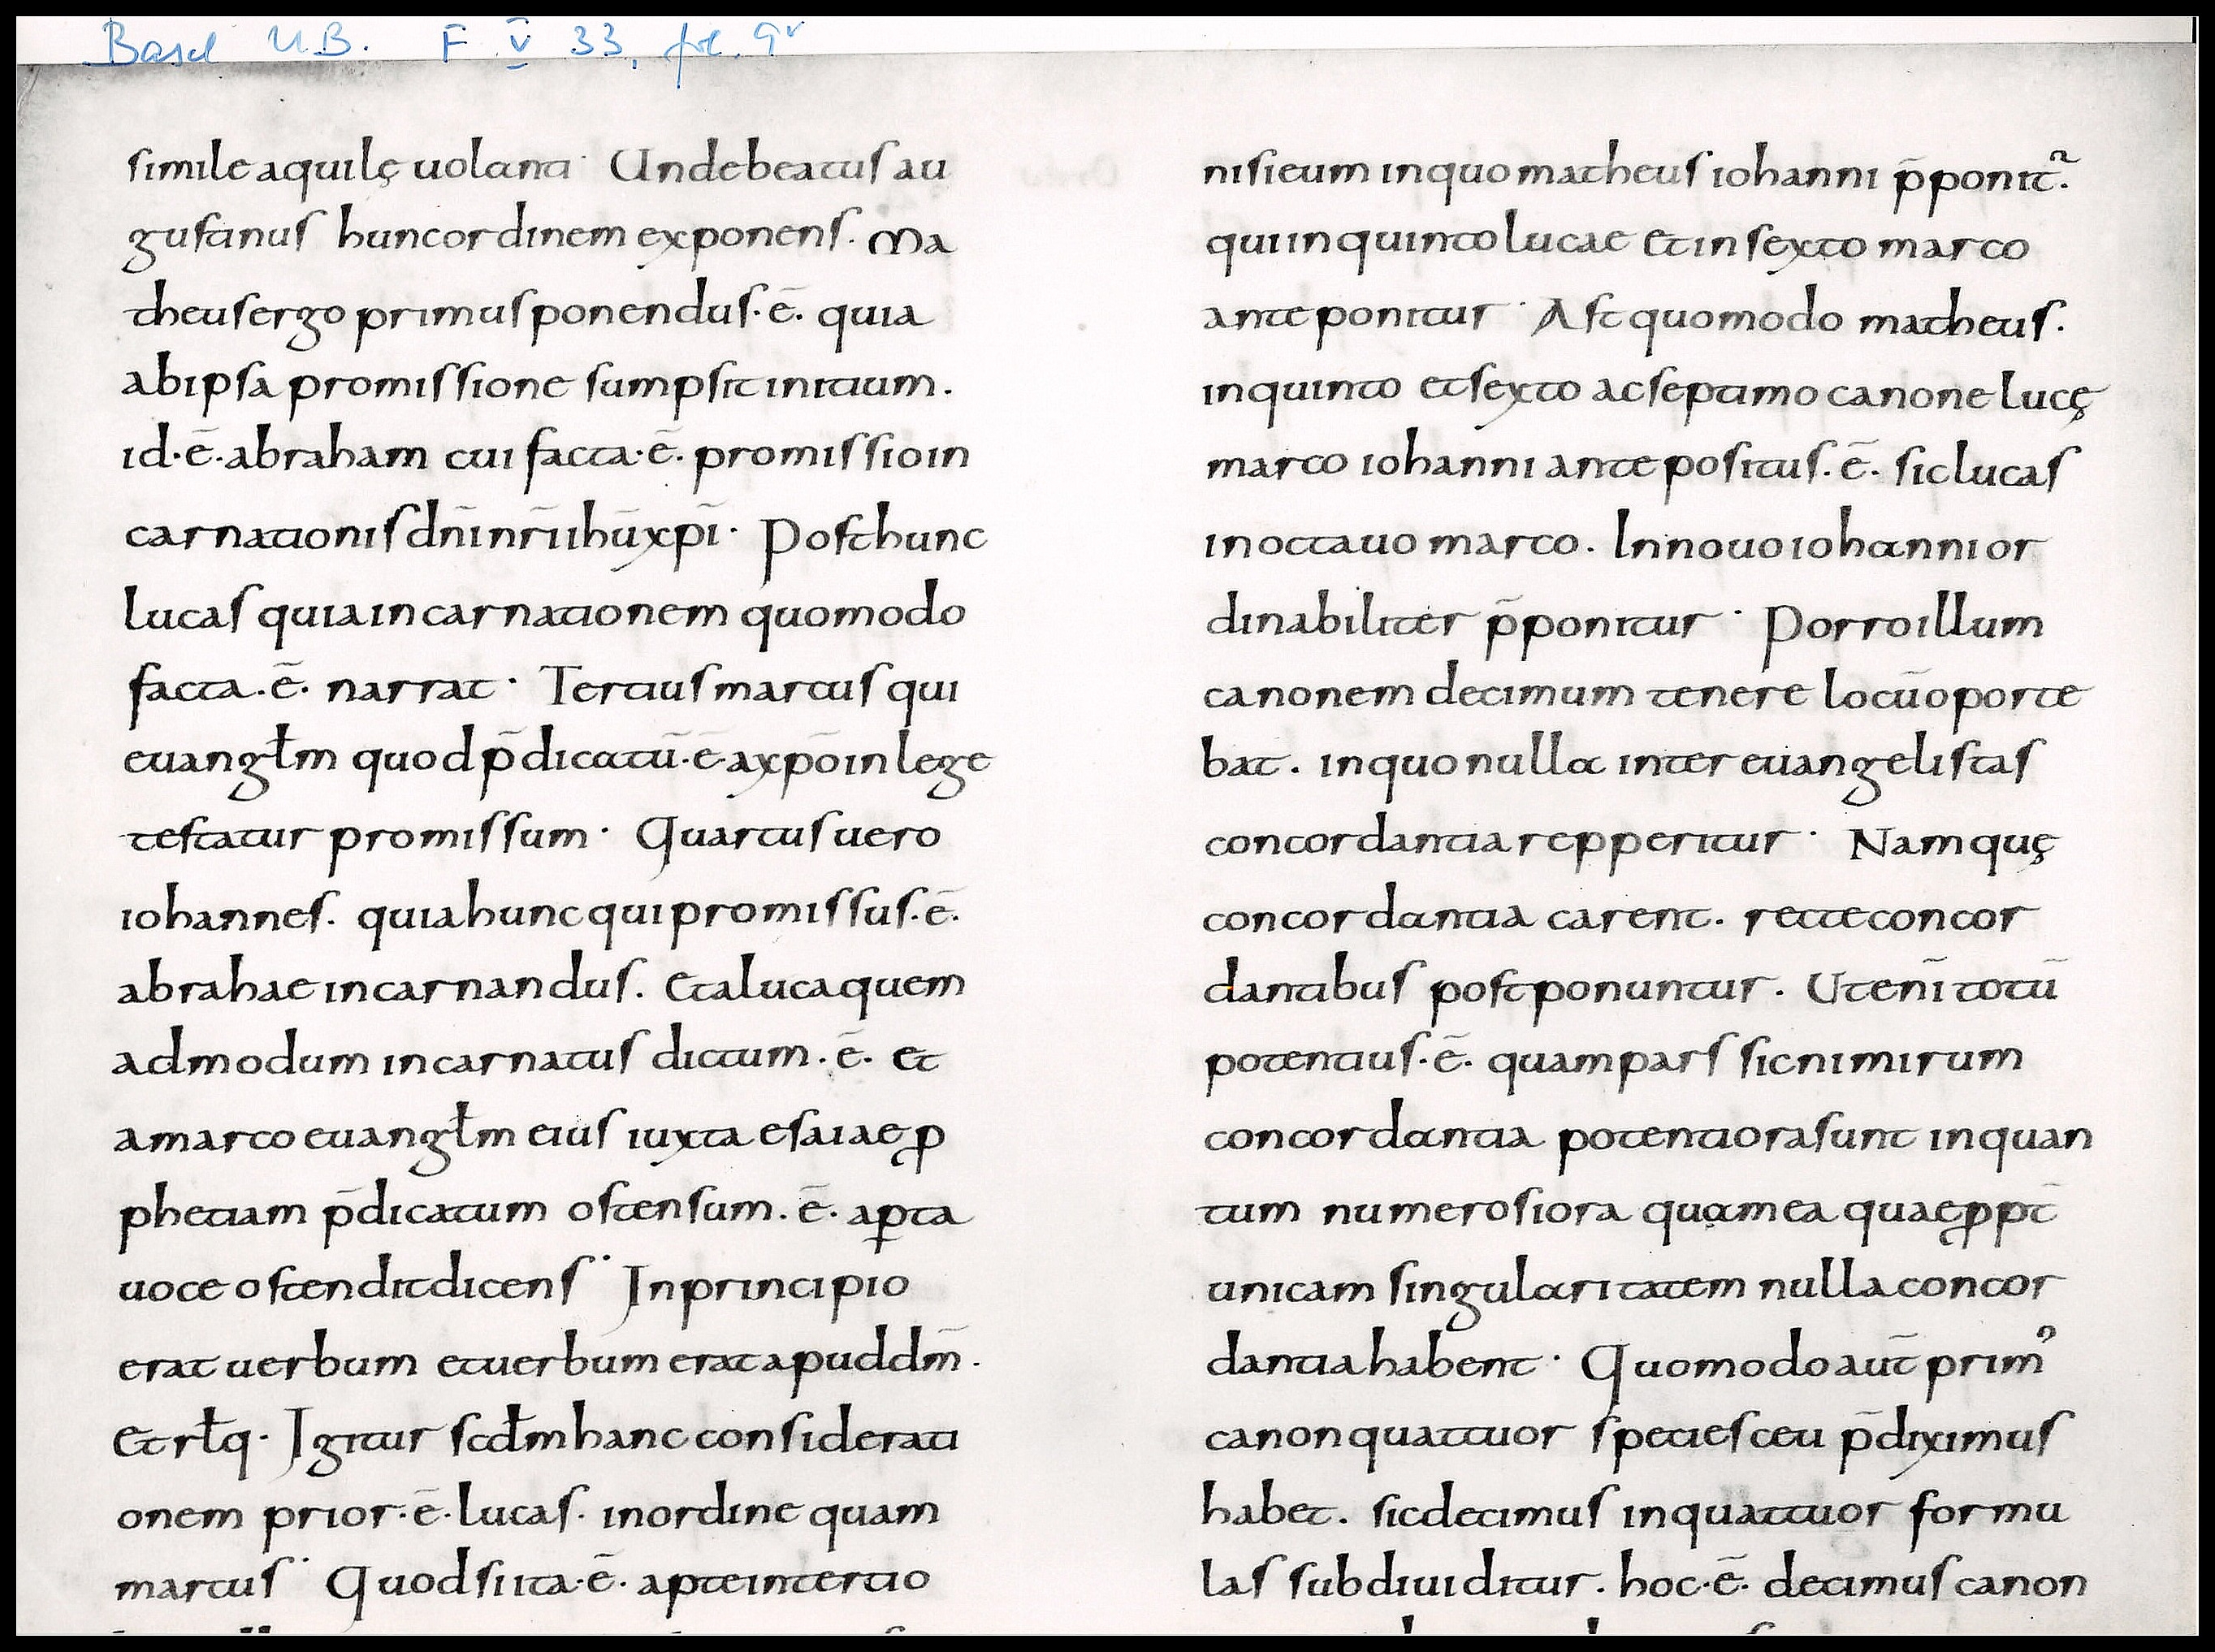 Basel U.B. F V 33, fol. 9v
simile aquilę uolanti· Unde beatus au
gustinus hunc ordinem exponens. Ma
theus ergo primus ponendus·ē· quia
ab ipsa promissione sumpsit initium.
id·ē·abraham cui facta·ē· promissio in
carnationis dn̄i nr̄i ihū xp̄i· Post hunc
lucas quia incarnationem quomodo
facta·ē· narrat· Tertius marcus qui
euangłm quod p̄dicatū·ē·a xp̄o in lege
testatur promissum· Quartus uero
iohannes. quia hunc qui promissus·ē·
abrahae incarnandus. et a luca quem
admodum incarnatus dictum·ē· et
a marco euangłm eius iuxta esaiae ꝓ
phetiam p̄dicatum ostensum·ē· aꝑta
uoce ostendit dicens· In principio
erat uerbum et uerbum erat apud dm̄.
Et rłq· Igitur scđm hanc considerati
onem prior·ē·lucas· in ordine quam
marcus· Quod si ita·ē· apte in tertio
nisi eum in quo matheus iohanni p̄ponit᷑.
qui in quinto lucae et in sexto marco
anteponitur· Ast quomodo matheus.
in quinto et sexto ac septimo canone lucę
marco iohanni antepositus·ē· sic lucas
in octauo marco. In nouo iohanni or
dinabiliter p̄ponitur· Porro illum
canonem decimum tenere locū oporte
bat. in quo nulla inter euangelistas
concordantia repperitur· Nam quę
concordantia carent. recte concor
dantibus postponuntur. Ut enī totū
potentius·ē· quam pars sic nimirum
concordantia potentiora sunt in quan
tum numerosiora quam ea quae ꝓpt̄
unicam singularitatem nulla concor
dantia habent· Quomodo aut̄ primꝰ
canon quattuor species ceu p̄diximus
habet. sic decimus in quattuor formu
las subdiuiditur. hoc·ē· decimus canon